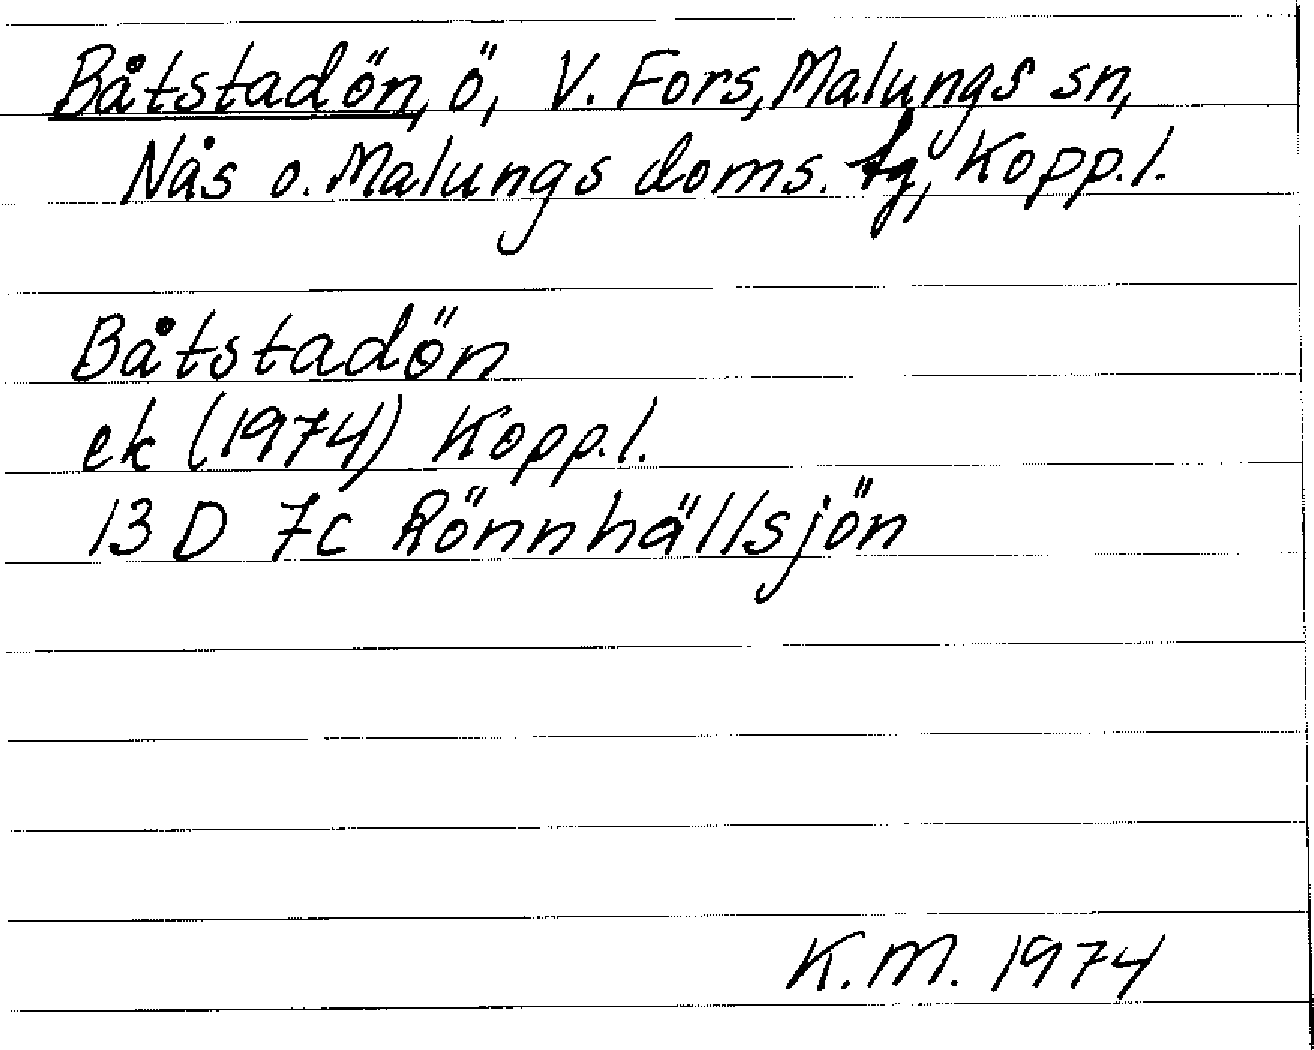 Båtstadön, ö, V. Fors, Malungs sn,
Nås o. Malungs doms. tg, Kopp.l.
Båtstadön
ek (1974) Kopp.l.
13 D 7c Rönnhällsjön
K.M. 1974